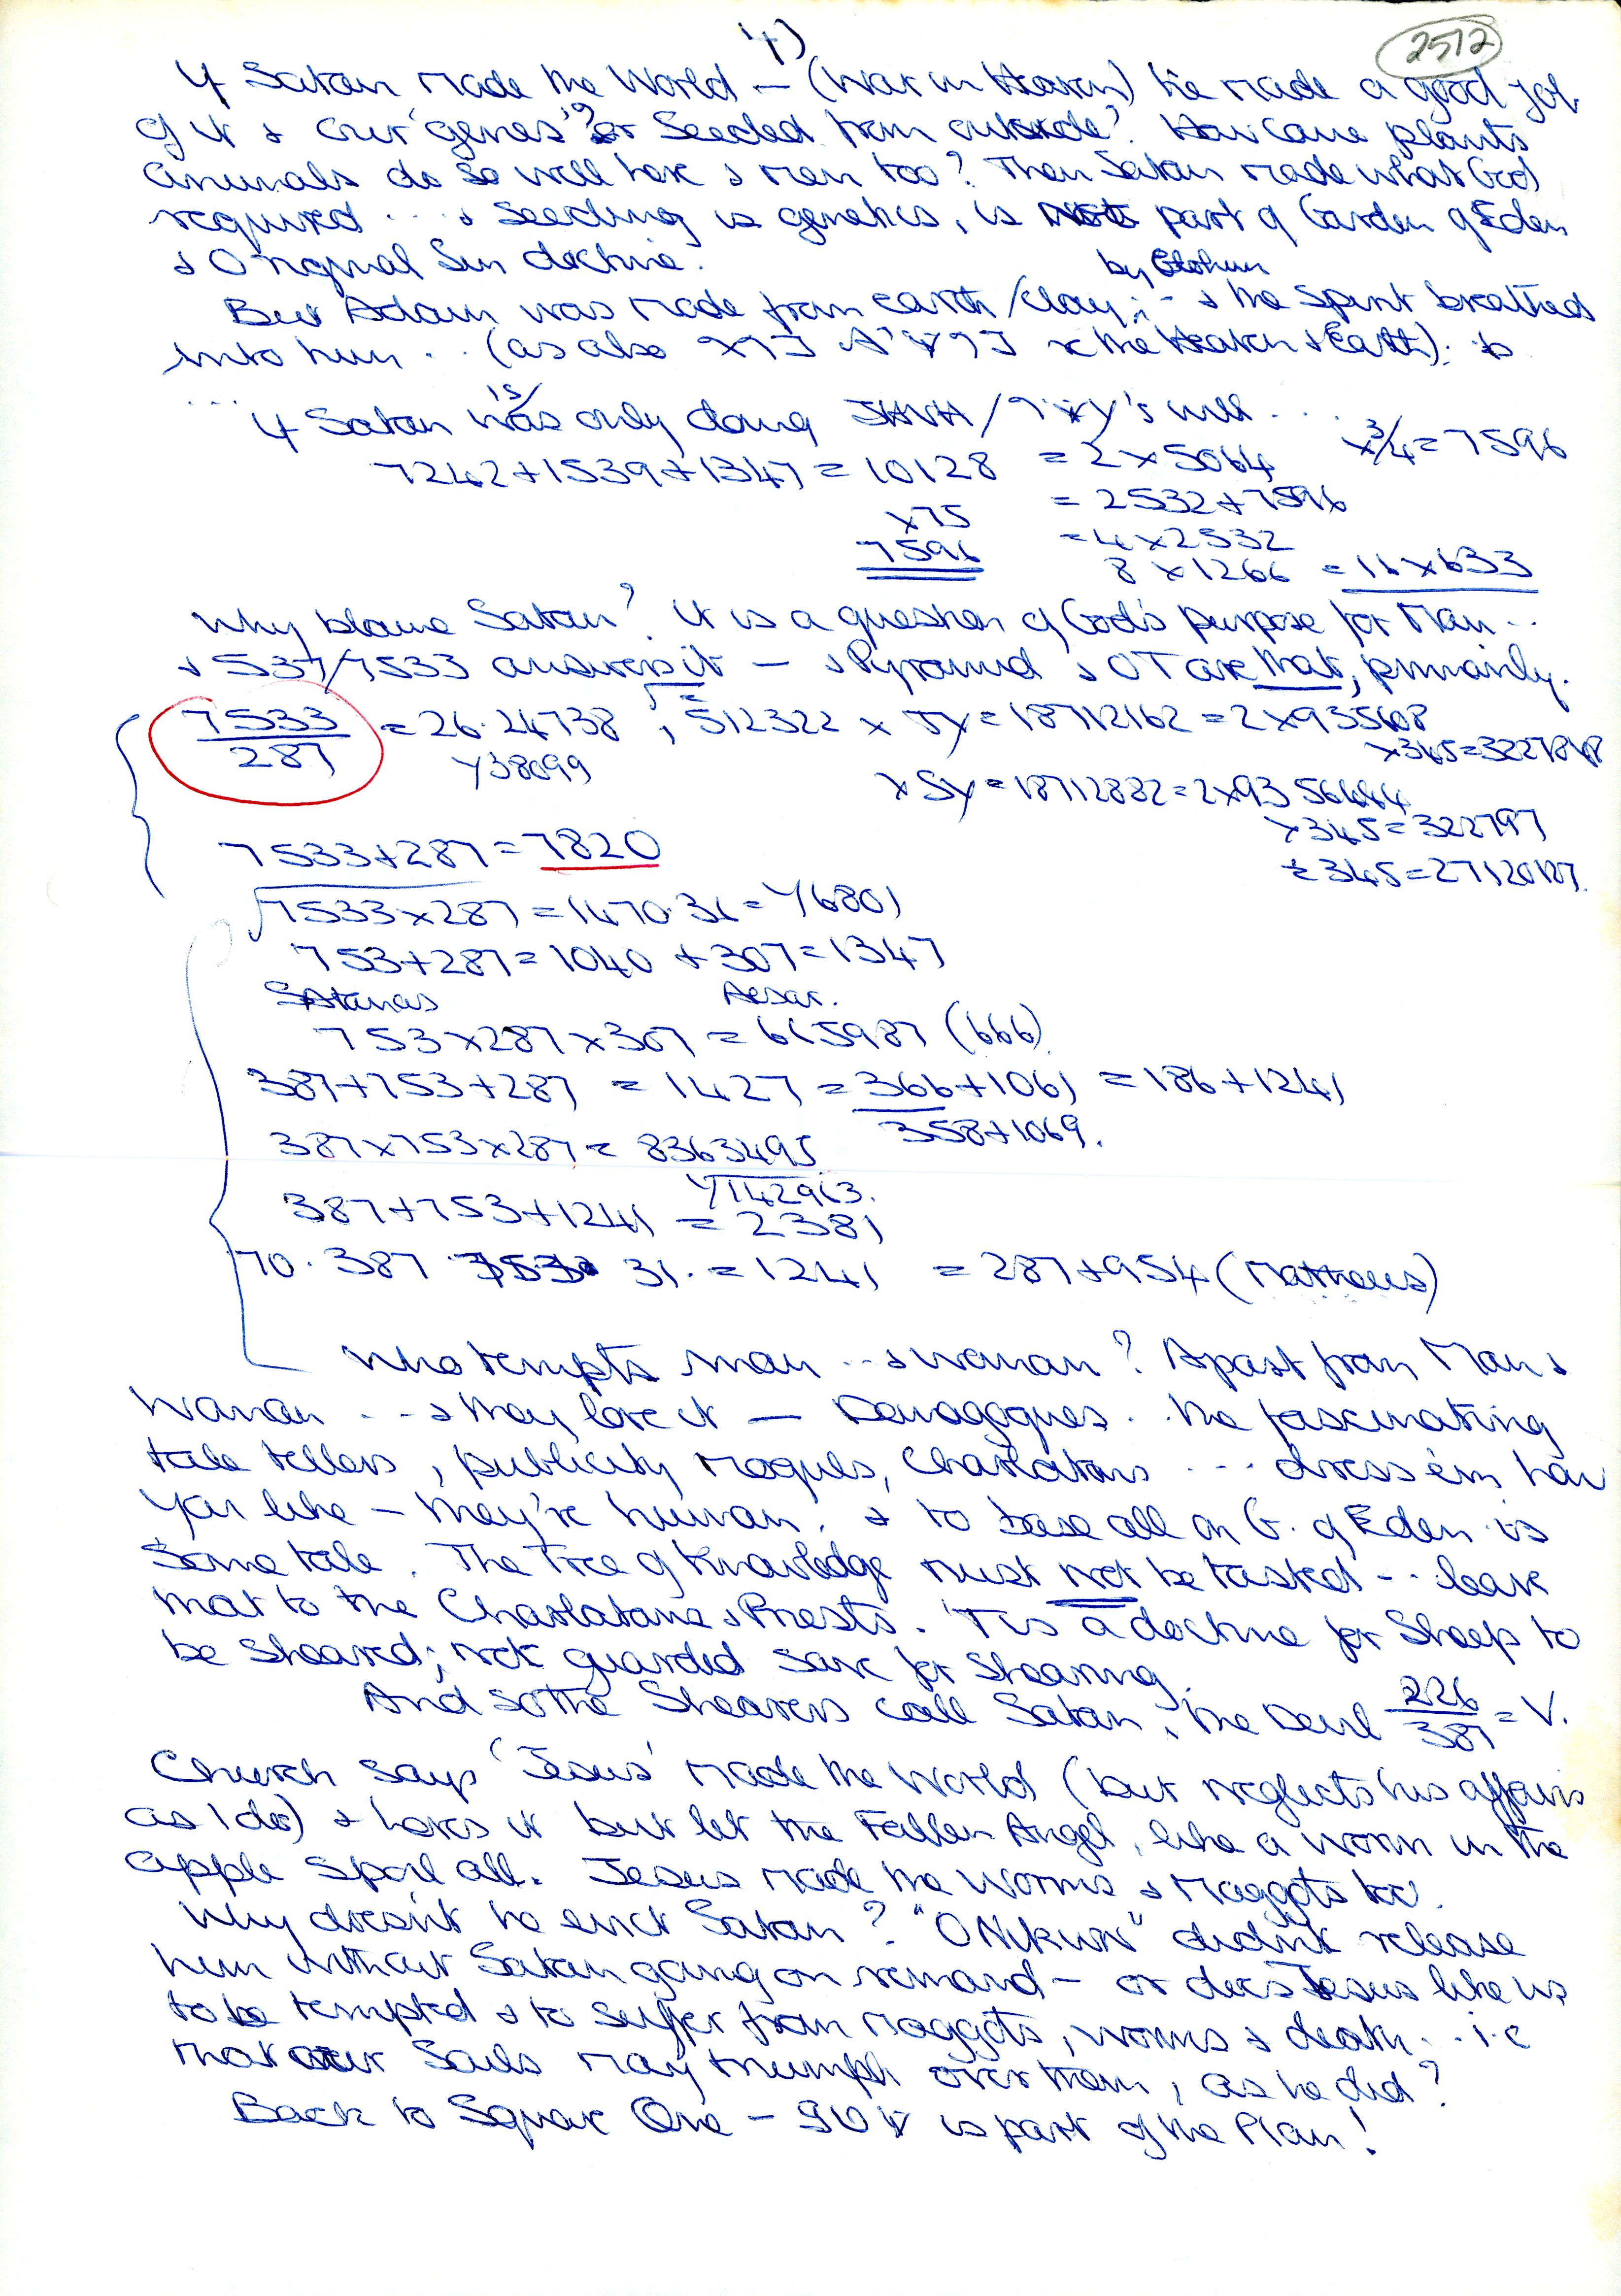 4)
2512
If Satan made the World — (War in Heaven) he made a good job
of it & our 'genes'? or Seeded from outside? How come plants
Animals do so well here & men too? Then Satan made what God
required ... & Seeding is genetics, is part of Garden of Eden
& Original Sin doctrine.
by Elohim
But Adam was made from earth/clay; -- & the spirit breathed
into him .. (as also the Heaven & Earth).
...
is/
If Satan was only doing JHVH / 's will ...
7242+1539+1347 = 10128 = 2 x 5064 x 3/4 = 7596
= 2532 + 7596
x75
= 4 x 2532
7596
8 x 1266 = 16 x 633
Why blame Satan? it is a question of God's purpose for Man ..
& 537/7533 answers it — & Pyramid & OT are that, primarily.
7533/287 = 26.24738 , 512322 x = 18712162 = 2 x 935608
x345=3227848
738099
x = 18712882 = 2 x 9356444
x345=322797
7533+287 = 7820
± 345 = 27120107.
√7533x287 = 1470.36 =
753+287=1040 +307=1347
Satanas Aesar.
753x287x307 = 665987 (666)
387+753+287 = 1427 = 366+1061 = 186+1241
358+1069.
387x753x287= 8363495
√142963.
387+753+1241 = 2381
70. 387 31. = 1241 = 287+954 (Mattheus)
Who tempts man ... & woman? Apart from Man &
Woman ... & they love it — Demagogues .. the fascinating
tale tellers, publicity moguls, Charlatans ... dress 'em how
you like – they're human. & to base all on G. of Eden is
some tale. The Tree of Knowledge must not be tasted -- leave
that to the Charlatans & Priests. 'Tis a doctrine for Sheep to
be sheared; not guarded save for shearing.
And so the Shearers call Satan, the Devil 226/387 = V.
Church says 'Jesus' made the World (but neglects his affairs
as I do) & loves it but let the Fallen Angel, like a worm in the
apple spoil all. Jesus made the Worms & Maggots too.
Why doesn't he evict Satan? didn't release
him without Satan going on remand – or does Jesus like us
to be tempted & to suffer from maggots, worms & death .. i.e
that our Souls may triumph over them, as he did?
Back to Square One – is part of the Plan!